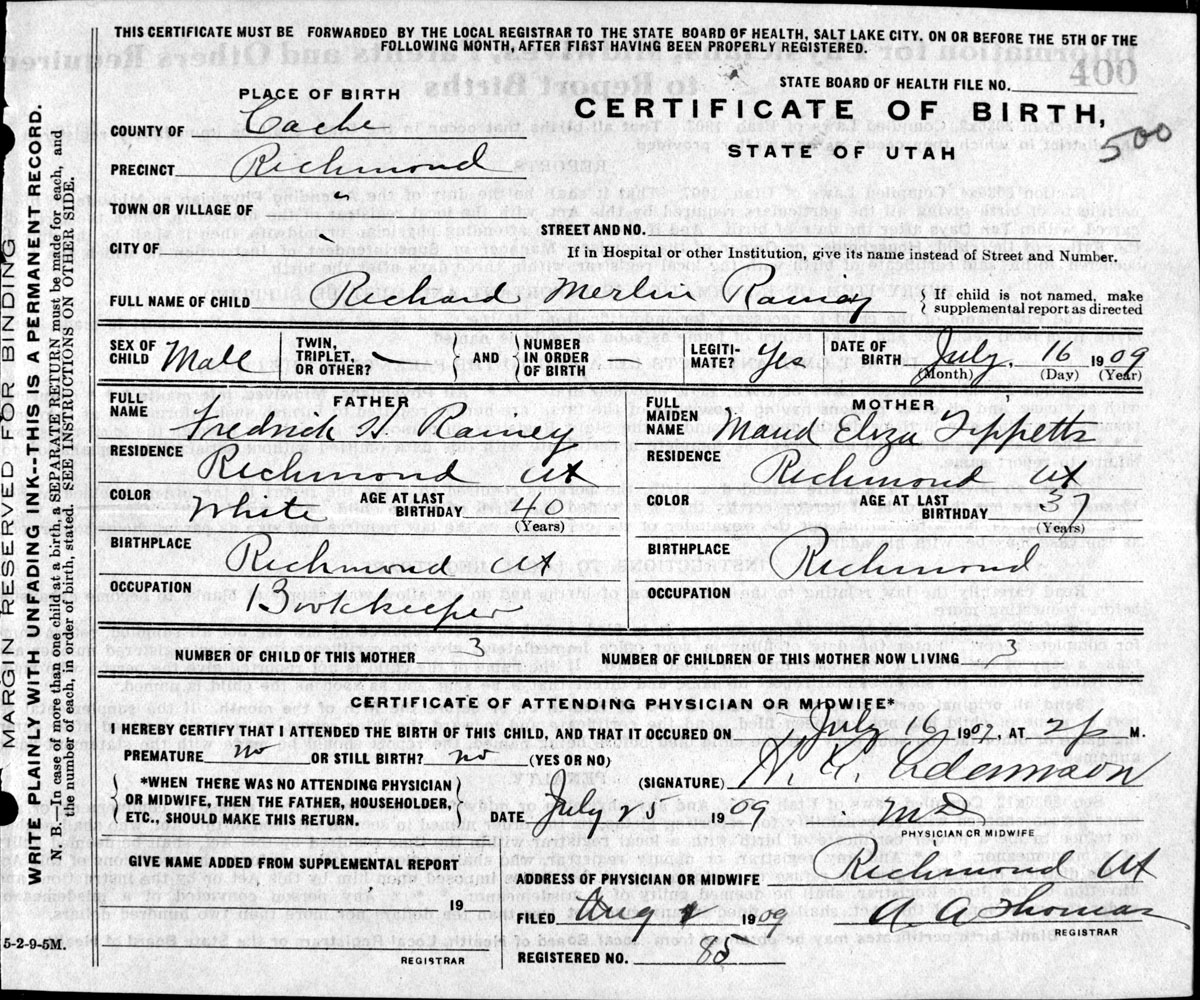 THIS CERTIFICATE MUST BE FORWARDED BY THE LOCAL REGISTRAR TO THE STATE BOARD OF HEALTH, SALT LAKE CITY. ON OR BEFORE THE 5TH OF THE
FOLLOWING MONTH, AFTER FIRST HAVING BEEN PROPERLY REGISTERED.
400
STATE BOARD OF HEALTH FILE NO.
PLACE OF BIRTH
CERTIFICATE OF BIRTH,
STATE OF UTAH
500
COUNTY OF Cache
PRECINCT Richmond
TOWN OR VILLAGE OF "
STREET AND NO.
CITY OF
If in Hospital or other Institution, give its name instead of Street and Number.
FULL NAME OF CHILD Richard Merlin Rainey { If child is not named, make
supplemental report as directed
SEX OF CHILD Male TWIN, TRIPLET, OR OTHER? { AND { NUMBER IN ORDER OF BIRTH LEGITI-MATE? Yes DATE OF BIRTH July 16 1909
(Month) (Day) (Year)
FATHER
FULL NAME Fredrick H Rainey
RESIDENCE Richmond Ut
COLOR White AGE AT LAST BIRTHDAY 40
(Years)
BIRTHPLACE Richmond Ut
OCCUPATION Bookkeeper
MOTHER
FULL MAIDEN NAME Maud Eliza Tippetts
RESIDENCE Richmond Ut
COLOR AGE AT LAST BIRTHDAY 37
(Years)
BIRTHPLACE Richmond
OCCUPATION
NUMBER OF CHILD OF THIS MOTHER 3 NUMBER OF CHILDREN OF THIS MOTHER NOW LIVING 3
CERTIFICATE OF ATTENDING PHYSICIAN OR MIDWIFE*
I HEREBY CERTIFY THAT I ATTENDED THE BIRTH OF THIS CHILD, AND THAT IT OCCURED ON July 16 1909, AT 2 p M.
PREMATURE no OR STILL BIRTH? no (YES OR NO)
*WHEN THERE WAS NO ATTENDING PHYSICIAN
OR MIDWIFE, THEN THE FATHER, HOUSEHOLDER,
ETC., SHOULD MAKE THIS RETURN.
(SIGNATURE) Adamson
DATE July 25 1909 M D
PHYSICIAN OR MIDWIFE
GIVE NAME ADDED FROM SUPPLEMENTAL REPORT
19
REGISTRAR
ADDRESS OF PHYSICIAN OR MIDWIFE Richmond Ut
FILED Aug 1 1909 A A Thomas
REGISTRAR
REGISTERED NO. 85
5-2-9-5M.
MARGIN RESERVED FOR BINDING
WRITE PLAINLY WITH UNFADING INK--THIS IS A PERMANENT RECORD.
N. B.—In case of more than one child at a birth, a SEPARATE RETURN must be made for each, and
the number of each, in order of birth, stated. SEE INSTRUCTIONS ON OTHER SIDE.